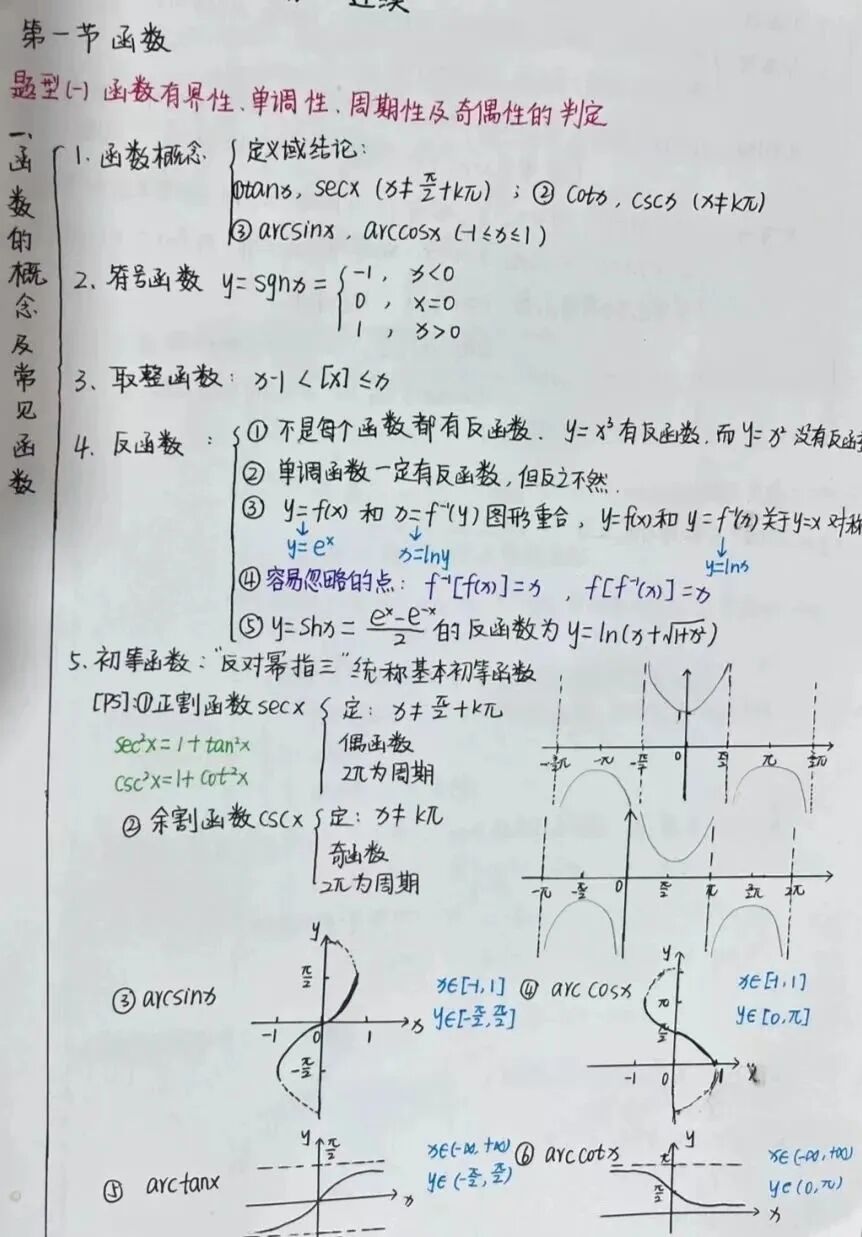 连续
第一节 函数
题型(一) 函数有界性、单调性、周期性及奇偶性的判定
一、函数的概念及常见函数
1. 函数概念 { 定义域结论:
①tanx, secx (x≠π/2+kπ) ; ② cotx, cscx (x≠kπ)
③ arcsinx, arccosx (-1≤x≤1)
2、符号函数 y=sgnx= { -1, x<0
0, x=0
1, x>0
3、取整函数: x-1<[x]≤x
4、反函数 : { ① 不是每个函数都有反函数. y=x³有反函数,而y=x²没有反函
② 单调函数一定有反函数,但反之不然.
③ y=f(x) 和 x=f⁻¹(y) 图形重合, y=f(x)和 y=f⁻¹(x)关于y=x对称
↓ y=eˣ ↓ x=lny ↓ y=lnx
④ 容易忽略的点: f⁻¹[f(x)]=x , f[f⁻¹(x)]=x
⑤ y=shx= (eˣ-e⁻ˣ)/2 的反函数为 y=ln(x+√(1+x²))
5、初等函数: "反对幂指三"统称基本初等函数
[PS]:①正割函数 secx { 定: x≠π/2+kπ
sec²x=1+tan²x
偶函数
csc²x=1+cot²x
2π为周期
1
-3/2π -π -π/2 0 π/2 π 3/2π
② 余割函数 cscx { 定: x≠kπ
奇函数
2π为周期
-π -π/2 0 π/2 π 3/2π 2π
③ arcsinx
y π/2 -1 0 1 x -π/2
x∈[-1,1]
y∈[-π/2,π/2]
④ arccosx
y π π/2 -1 0 1 x
x∈[-1,1]
y∈[0,π]
⑤ arctanx
y π/2 x
x∈(-∞,+∞)
y∈(-π/2,π/2)
⑥ arccotx
π y π/2 x
x∈(-∞,+∞)
y∈(0,π)